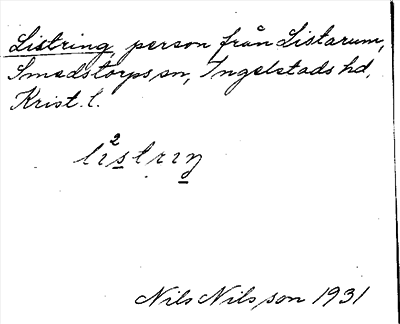 Listring, person från Listarum,
Smedstorps sn, Ingelstads hd,
Krist. l.
lı²strıŋ
Nils Nilsson 1931